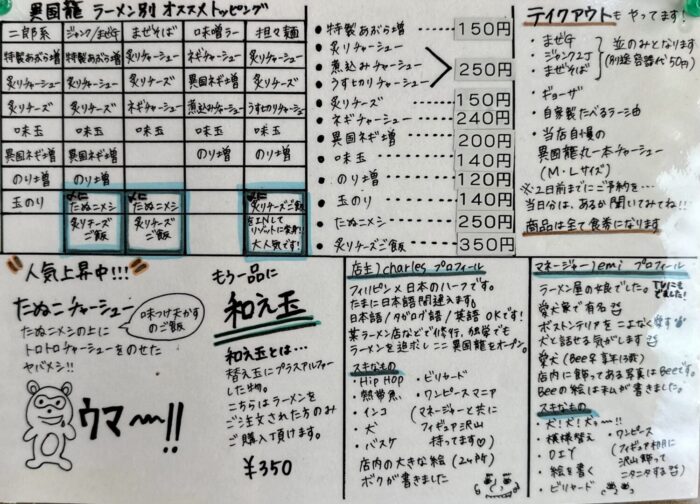 異国龍 ラーメン別 オススメトッピング
二郎系 ジャンク/まぜG まぜそば 味噌ラー 担々麺
特製あぶら増 特製あぶら増 炙りチャーシュー ネギチャーシュー 炙りチャーシュー
炙りチャーシュー 炙りチャーシュー 炙りチーズ 異国ネギ増 炙りチーズ
炙りチーズ 炙りチーズ ネギチャーシュー 煮込みチャーシュー うすヒカリチャーシュー
味玉 味玉 味玉 味玉
異国ネギ増 異国ネギ増 のり増 のり増
のり増 のり増
玉のり 〆に たぬ二メシ 〆に たぬ二メシ 〆に 炙りチーズご飯
炙りチーズご飯 炙りチーズご飯 をINして リゾットに変身!! 大人気です!
● 特製あぶら増 150円
● 炙りチャーシュー
● 煮込みチャーシュー 250円
● うすヒカリチャーシュー
● 炙りチーズ 150円
● ネギチャーシュー 240円
● 異国ネギ増 200円
● 味玉 140円
● のり増 120円
● 玉のり 140円
● たぬ二メシ 250円
● 炙りチーズご飯 350円
テイクアウトも やってます!
・まぜG
・ジャンクよJ
・まぜそば
並のみとなります
(別途 容器代 50円)
・ギョーザ
・自家製たべるラー油
・当店自慢の
異国龍丸一本チャーシュー
(M・Lサイズ)
※2日前までにご予約を…
当日分は、あるか聞いてみてね!!
商品は全て食券になります
人気上昇中!!!
たぬ二チャーシュー
味つけ天かすのご飯
たぬ二メシの上に
トロトロチャーシューをのせた
ヤバメシ!!
ウマ〜!!
もう一品に
和え玉
和え玉とは…
替え玉にプラスアルファー
した物。
こちらはラーメンを
ご注文された方のみ
ご購入頂けます。
¥350
店主)charles プロフィール
フィリピン×日本のハーフです。
たまに日本語間違えます。
日本語/タガログ語/英語 OKです!
某ラーメン店などで修行、独学でも
ラーメンを追求し ここ異国龍をオープン。
スキなもの
・HipHop
・熱帯魚
・インコ
・犬
・バスケ
・ビリヤード
・ワンピースマニア
(マネージャーと共に
フィギュア沢山
持ってます♡)
店内の大きな絵(2ヶ所)
ボクが書きました
マネージャー)emi プロフィール
ラーメン屋の娘でした。TVにもでました!
愛犬家で有名
ボストンテリアをこよなく愛す
犬と話せる気がします
愛犬(Bee 享年13歳)
店内に飾ってある写真はBeeです。
Beeの絵は私が書きました。
スキなもの
・犬!犬!犬っ〜!!
・模様替え
・DIY
・絵を書く
・ビリヤード
・ワンピース
(フィギュア初月に
沢山飾って
ニタニタする)